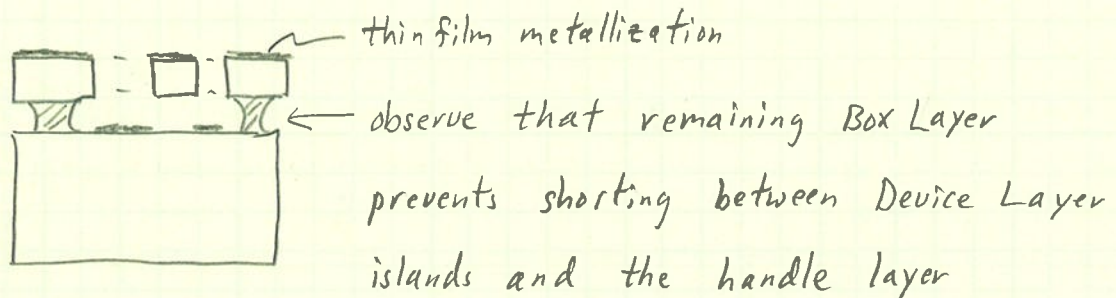 thin film metallization
observe that remaining Box Layer
prevents shorting between Device Layer
islands and the handle layer